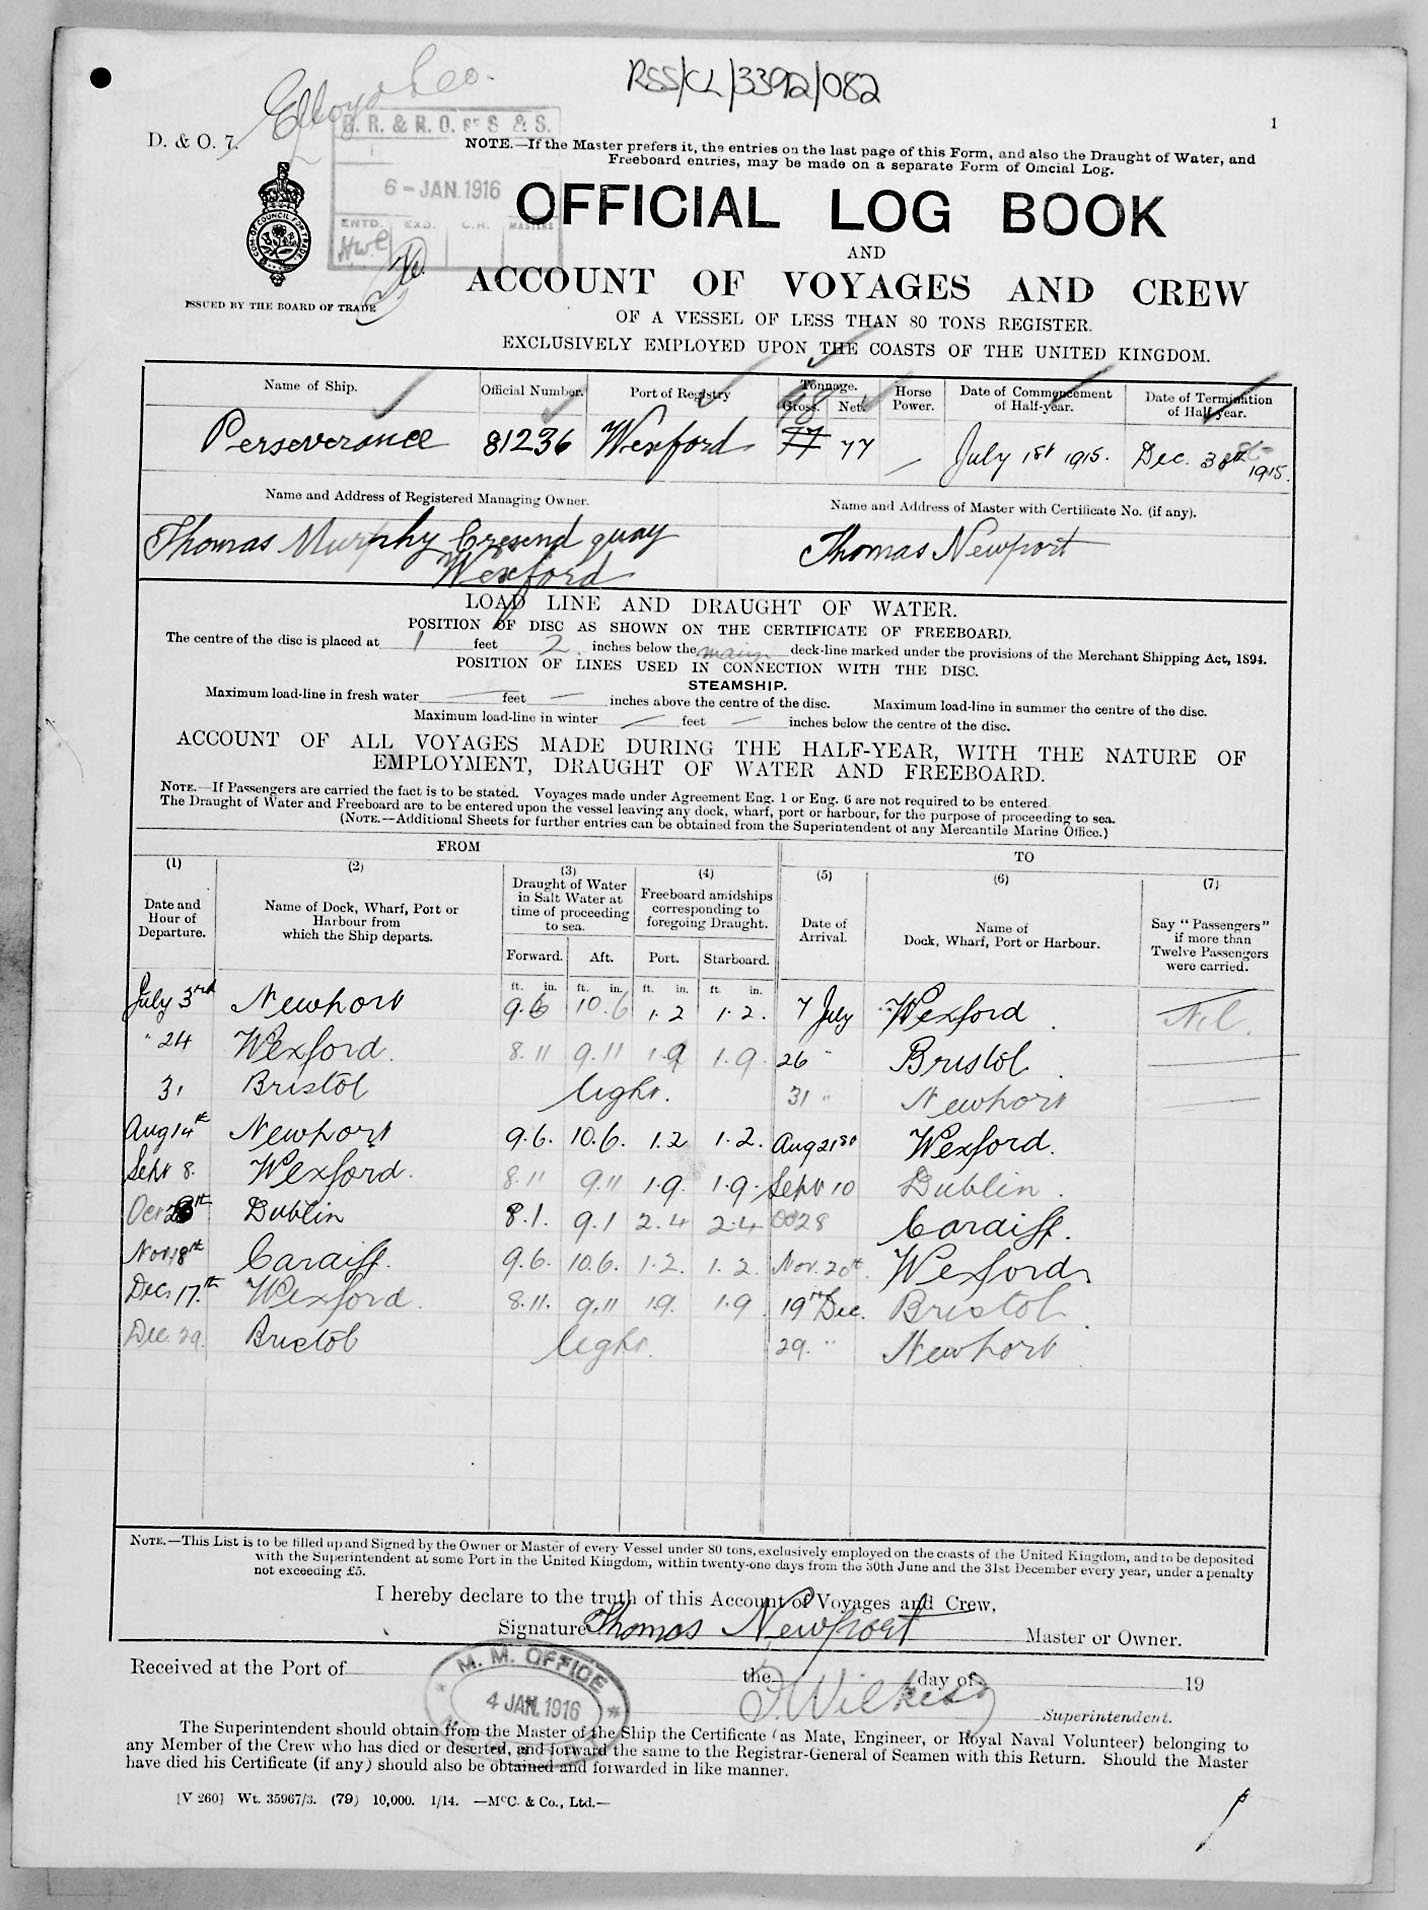 RSS/CL/3392/082
1
D. & O. 7.
R. & R. O. OF S. & S.
6 - JAN. 1916
ENTD. EXD. C.R. MASTERS
NOTE.—If the Master prefers it, the entries on the last page of this Form, and also the Draught of Water, and
Freeboard entries, may be made on a separate Form of Official Log.
OFFICIAL LOG BOOK
AND
ACCOUNT OF VOYAGES AND CREW
ISSUED BY THE BOARD OF TRADE
OF A VESSEL OF LESS THAN 80 TONS REGISTER.
EXCLUSIVELY EMPLOYED UPON THE COASTS OF THE UNITED KINGDOM.
Name of Ship. Official Number. Port of Registry Tonnage. Gross. Net. Horse Power. Date of Commencement of Half-year. Date of Termination of Half-year.
98
Perseverance 81236 Wexford 77 77 — July 1st 1915. Dec. 1915.
Name and Address of Registered Managing Owner. Name and Address of Master with Certificate No. (if any).
Thomas Murphy Cresend quay Thomas Newport
Wexford
LOAD LINE AND DRAUGHT OF WATER.
POSITION OF DISC AS SHOWN ON THE CERTIFICATE OF FREEBOARD.
The centre of the disc is placed at 1 feet 2 inches below the main deck-line marked under the provisions of the Merchant Shipping Act, 1894.
POSITION OF LINES USED IN CONNECTION WITH THE DISC.
STEAMSHIP.
Maximum load-line in fresh water — feet — inches above the centre of the disc. Maximum load-line in summer the centre of the disc.
Maximum load-line in winter — feet — inches below the centre of the disc.
ACCOUNT OF ALL VOYAGES MADE DURING THE HALF-YEAR, WITH THE NATURE OF
EMPLOYMENT, DRAUGHT OF WATER AND FREEBOARD.
NOTE.—If Passengers are carried the fact is to be stated. Voyages made under Agreement Eng. 1 or Eng. 6 are not required to be entered
The Draught of Water and Freeboard are to be entered upon the vessel leaving any dock, wharf, port or harbour, for the purpose of proceeding to sea.
(NOTE.—Additional Sheets for further entries can be obtained from the Superintendent of any Mercantile Marine Office.)
FROM TO
(1) (2) (3) (4) (5) (6) (7)
Date and Hour of Departure. Name of Dock, Wharf, Port or Harbour from which the Ship departs. Draught of Water in Salt Water at time of proceeding to sea. Freeboard amidships corresponding to foregoing Draught. Date of Arrival. Name of Dock, Wharf, Port or Harbour. Say "Passengers" if more than Twelve Passengers were carried.
Forward. Aft. Port. Starboard.
ft. in. ft. in. ft. in. ft. in.
July 3rd Newport 9.6 10.6 1.2 1.2. 7 July Wexford Nil.
" 24 Wexford. 8.11 9.11 1.9 1.9. 26 " Bristol —
31 Bristol light. 31 " Newport —
Aug 14th Newport 9.6. 10.6. 1.2 1.2. Aug 21st Wexford.
Sept 8. Wexford. 8.11 9.11 1.9. 1.9. Sept 10 Dublin.
Oct Dublin 8.1. 9.1 2.4 2.4 Oct 28 Cardiff.
Nov. 18th Cardiff. 9.6. 10.6. 1.2. 1.2 Nov. 20th. Wexford
Dec 17.th Wexford. 8.11. 9.11 1.9. 1.9. 19th Dec. Bristol.
Dec. 29. Bristol light. 29. " Newport.
NOTE.—This List is to be filled up and Signed by the Owner or Master of every Vessel under 80 tons, exclusively employed on the coasts of the United Kingdom, and to be deposited
with the Superintendent at some Port in the United Kingdom, within twenty-one days from the 30th June and the 31st December every year, under a penalty
not exceeding £5.
I hereby declare to the truth of this Account of Voyages and Crew,
Signature Thomas Newport Master or Owner.
Received at the Port of the day of 19
M. M. OFFICE
4 JAN. 1916
Superintendent.
The Superintendent should obtain from the Master of the Ship the Certificate (as Mate, Engineer, or Royal Naval Volunteer) belonging to
any Member of the Crew who has died or deserted, and forward the same to the Registrar-General of Seamen with this Return. Should the Master
have died his Certificate (if any) should also be obtained and forwarded in like manner.
[V 260] Wt. 35967/3. (79) 10,000. 1/14. —McC. & Co., Ltd.—